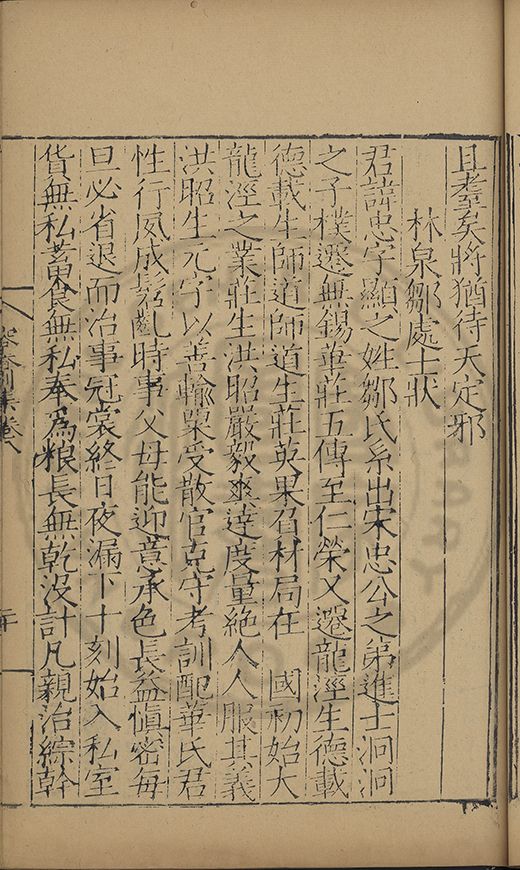 且耋矣將猶待天定邪
林泉鄒處士狀
君諱忠字顯之姓鄒氏系出宋忠公之弟進士洞洞
之子樸遷無錫華莊五傳至仁榮又遷龍涇生德載
德載生師道師道生莊英果有材局在 國初始大
龍涇之業莊生洪昭嚴毅爽達度量絕人人服其義
洪昭生元宇以善輸粟受散官克守考訓配華氏君
性行夙成髫齔時事父母能迎意承色長益慎密每
旦必省退而治事冠裳終日夜漏下十刻始入私室
貨無私蓄食無私奉為粮長無乾沒計凡親治綜幹